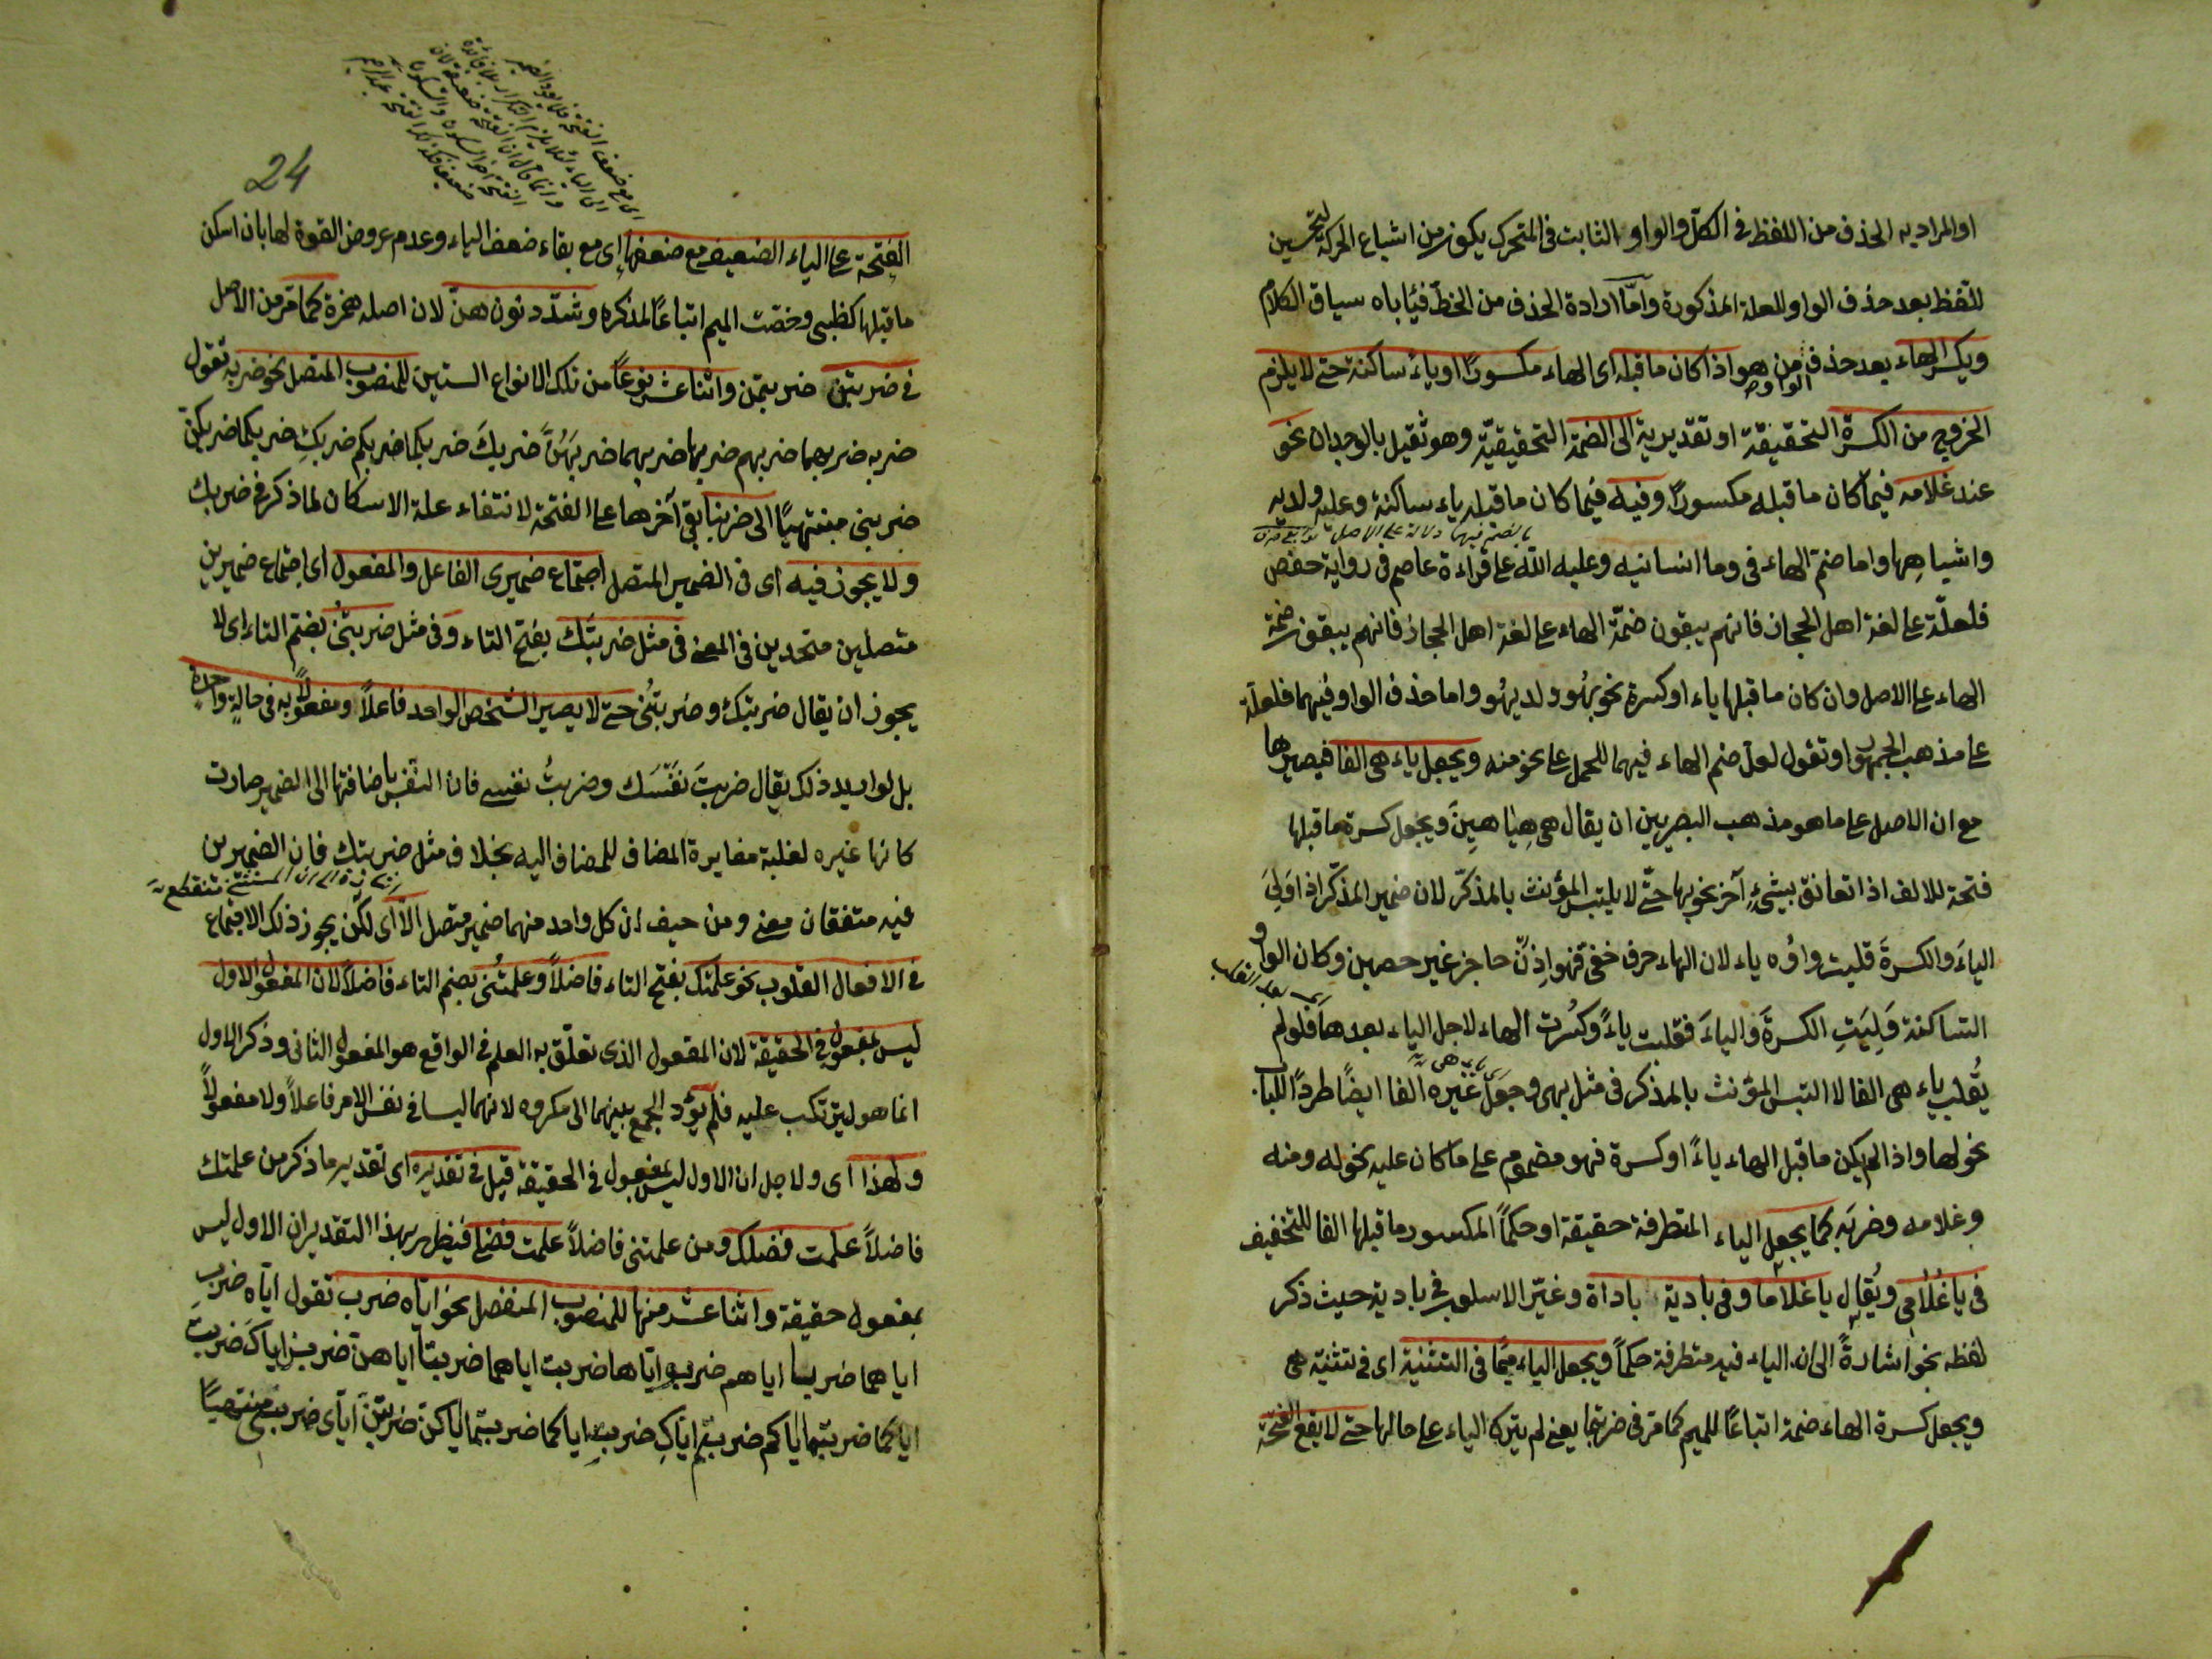 او المراد به الحذف من اللفظ فى الكل والواو الثابت فى المتحرك يكون من اشباع الحركة لتحسين
للتفظ بعد حذف الواو للعلة المذكورة وامّا ارادة الحذف من الخطّ فيأباه سياق الكلام
ويكسر الهاء بعد حذف الواو من هو اذا كان ما قبله اى الهاء مكسورًا او ياءً ساكنة حتى لا يلزم
الخروج من الكسرة التحقيقة او تقديرية الى الضمة التحقيقيّة وهو ثقيل بالوجدان نحو
عند غلامه فيما كان ما قبله مكسورًا وفيه فيما كان ما قبله ياء ساكنة وعليه ولديه
واشباهها واما ضمّ الهاء فى وما انسانيه وعليه الله على قراءة عاصم فى رواية حفص
فلعلّة على لغة اهل الحجاز فانهم يبقون ضمّة الهاء على لغة اهل الحجاز فانهم يبقون ضمة
الهاء على الاصل وان كان ما قبلها ياء او كسرة نحو بهُو ولديهُو واما حذف الواو فيهما فلعلّة
على مذهب الجمهور او تقول لعل ضم الهاء فيهما للحمل على نحو منه ويجعل ياء هى الفا فيصير ها
مع ان الاصل على ما هو مذهب البصريين ان يقال هى هِيَا هِينَ ويجعل كسرة ما قبلها
فتحة للالف اذا تعانق بشىءٍ آخر نحو بها حتّى لا يلتبس المؤنث بالمذكّر لان ضمير المذكّر اذا وَلِىَ
الياءَ والكسرةَ قلبت واوُه ياء لان الهاء حرف خفىّ فهو اِذنْ حاجز غير حصين وكان الواو
الساكنة وَلِيَتِ الكسرةَ والياءَ فقلبت ياءً وكُسرت الهاء لاجل الياء بعدها فلو لم
يُقلب ياء هى الفا لا التبس المؤنث بالمذكر فى مثل بهى وجعل غيره الفا ايضًا طردًا للباب
نحو لها واذا لم يكن ما قبل الهاء ياءً او كسرة فهو مضموم على ما كان عليه نحو له ومنه
وغلامه وضربَه كما يجعل الياء المتطرفة حقيقة او حكماً المكسور ما قبلها الفا للتخفيف
فى يا غُلامى ويُقال يا غلاما وفى بادية باداة وغيّر الاسلوب فى بادية حيث ذكر
لفظه نحو اشارةً الى ان الياء فيه متطرفة حكماً ويجعل الياء ميمًا فى التثنية اى فى تثنية هى
ويجعل كسرة الهاء ضمة اتباعًا للميم كما مرّ فى ضربتما يعنى لم يترك الياء على حالها حتى لا يقع الفتحة
24
الفتحة على الياء الضعيف مع ضعفها اى مع بقاء ضعف الياء وعدم عروض القوة لها بان اسكن
ما قبلها كظبى وخصّت الميم اتباعًا لمذكره وشدّد نون هنّ لان اصله همزة كما مرّ من الاصل
فى ضربتن ضربتمن واثنا عشر نوعًا من تلك الانواع الستين للمنصوب المتصل نحو ضربه تقول
ضربه ضربهما ضربهم ضربها ضربهما ضربهنّ ضربكَ ضربكما ضربكم ضربكِ ضربكما ضربكنّ
ضربنى منتهيًا الى ضربنا بقى آخرها على الفتحة لانتفاء علة الاسكان لما ذكر فى ضربك
ولا يجوز فيه اى فى الضمير المتصل اجتماع ضميرى الفاعل والمفعول اى اجتماع ضميرين
متصلين متحدين فى المعنى فى مثل ضربتَك بفتح التاء وفى مثل ضربتُنى بضم التاء اى لا
يجوز ان يقال ضربتك وضربتُنى حتى لا يصير الشخص الواحد فاعلاً ومفعولاً به فى حالةٍ واحدةٍ
بل لو اريد ذلك يقال ضربتَ نفسَك وضربتُ نفسى فان النفس باضافتها الى الضمير صارت
كانها غيره لغلبة مغايرة المضاف للمضاف اليه بخلاف مثل ضربتك فان الضميرين
فيه متفقان معنى ومن حيث ان كل واحد منهما ضمير متصل الّا اى لكن يجوز ذلك الاجتماع
فى الافعال القلوب نحو علمتك بفتح التاء فاضلاً وعلمتُنى بضم التاء فاضلاً لان المفعول الاول
ليس بمفعول فى الحقيقة لان المفعول الذى تعلّق به العلم فى الواقع هو المفعول الثانى وذكر الاول
انما هو ليترتّب عليه فلم يؤد الجمع بينهما الى مكروه لانهما ليسا فى نفس الامر فاعلاً ولا مفعولاً
ولهذا اى ولاجل ان الاول ليس بمفعول فى الحقيقة قيل فى تقديره اى تقدير ما ذكر من علمتك
فاضلاً علمت فضلك ومن علمتنى فاضلاً علمت فضلى فيظهر بهذا التقدير ان الاول ليس
بمفعول حقيقة واثنا عشر منها للمنصوب المنفصل نحو اياه ضرب تقول ايّاه ضرب
اياهما ضربا اياهم ضربوا ايّاها ضربت اياهما ضربتا اياهنّ ضربن اياكَ ضربتَ
اياكما ضربتما اياكم ضربتم اياكِ ضربتِ اياكما ضربتما اياكنّ ضربتنّ ايّاى ضربت منتهيًا